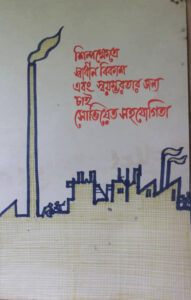 শিল্পক্ষেত্রে
স্বাধীন বিকাশ
এবং স্বয়ম্ভরতার জন্য
চাই
সোভিয়েত সহযোগিতা